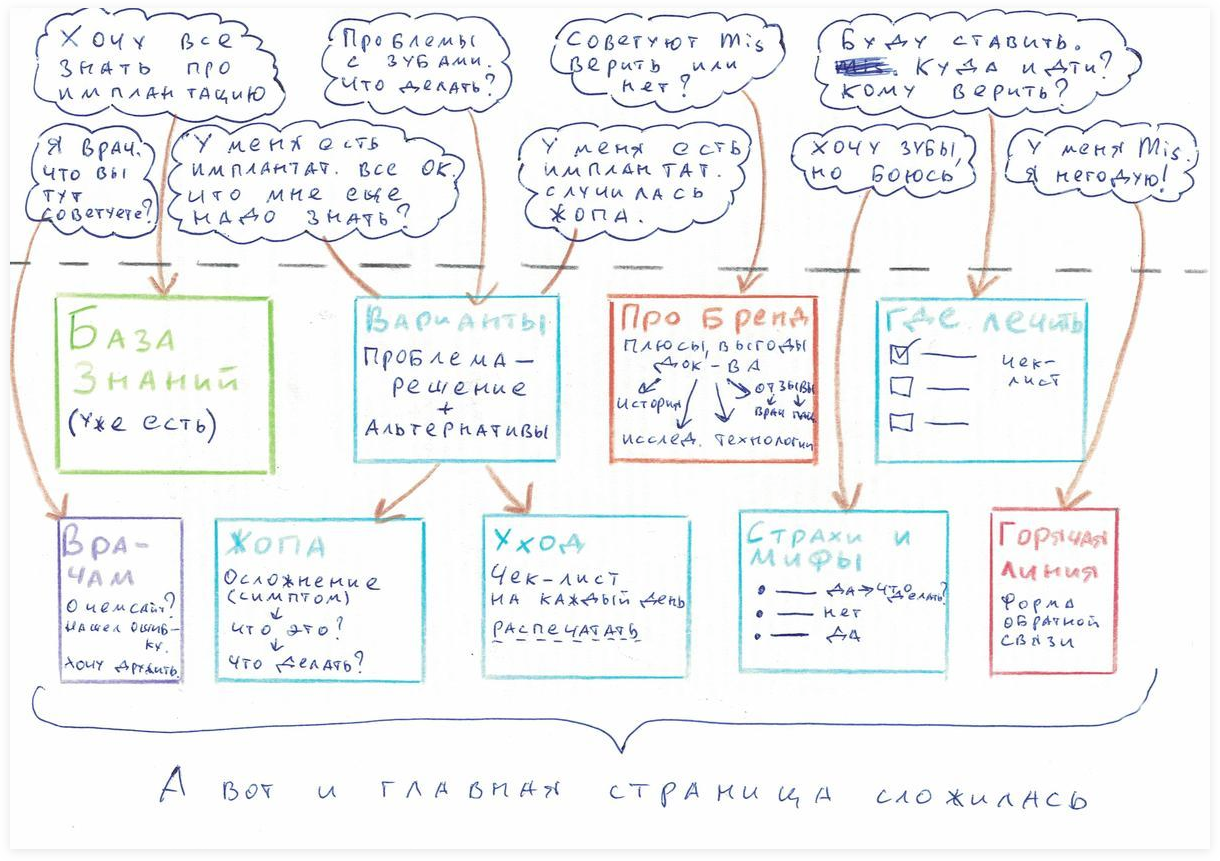 Хочу все
знать про
имплантацию
Проблемы
с зубами.
Что делать?
Советуют Mis
верить или
нет?
Буду ставить.
Mis. Куда идти?
Кому верить?
Я врач.
Что вы
тут
советуете?
У меня есть
имплантат. Все ОК.
Что мне еще
надо знать?
У меня есть
имплантат.
Случилась
жопа.
Хочу зубы,
но боюсь
У меня Mis.
Я негодую!
База
Знаний
(уже есть)
Варианты
Проблема –
решение
+
Альтернативы
Про Бренд
плюсы, выгоды
док-ва
история
отзывы
врач пац
исслед. технологии
Где лечить
чек-
лист
Вра-
чам
О чем сайт?
Нашел ошиб-
ку.
Хочу дружить.
Жопа
Осложнение
(симптом)
что это?
что делать?
Уход
Чек-лист
на каждый день
распечатать
Страхи и
мифы
да → что делать?
нет
да
Горячая
линия
Форма
обратной
связи
А вот и главная страница сложилась